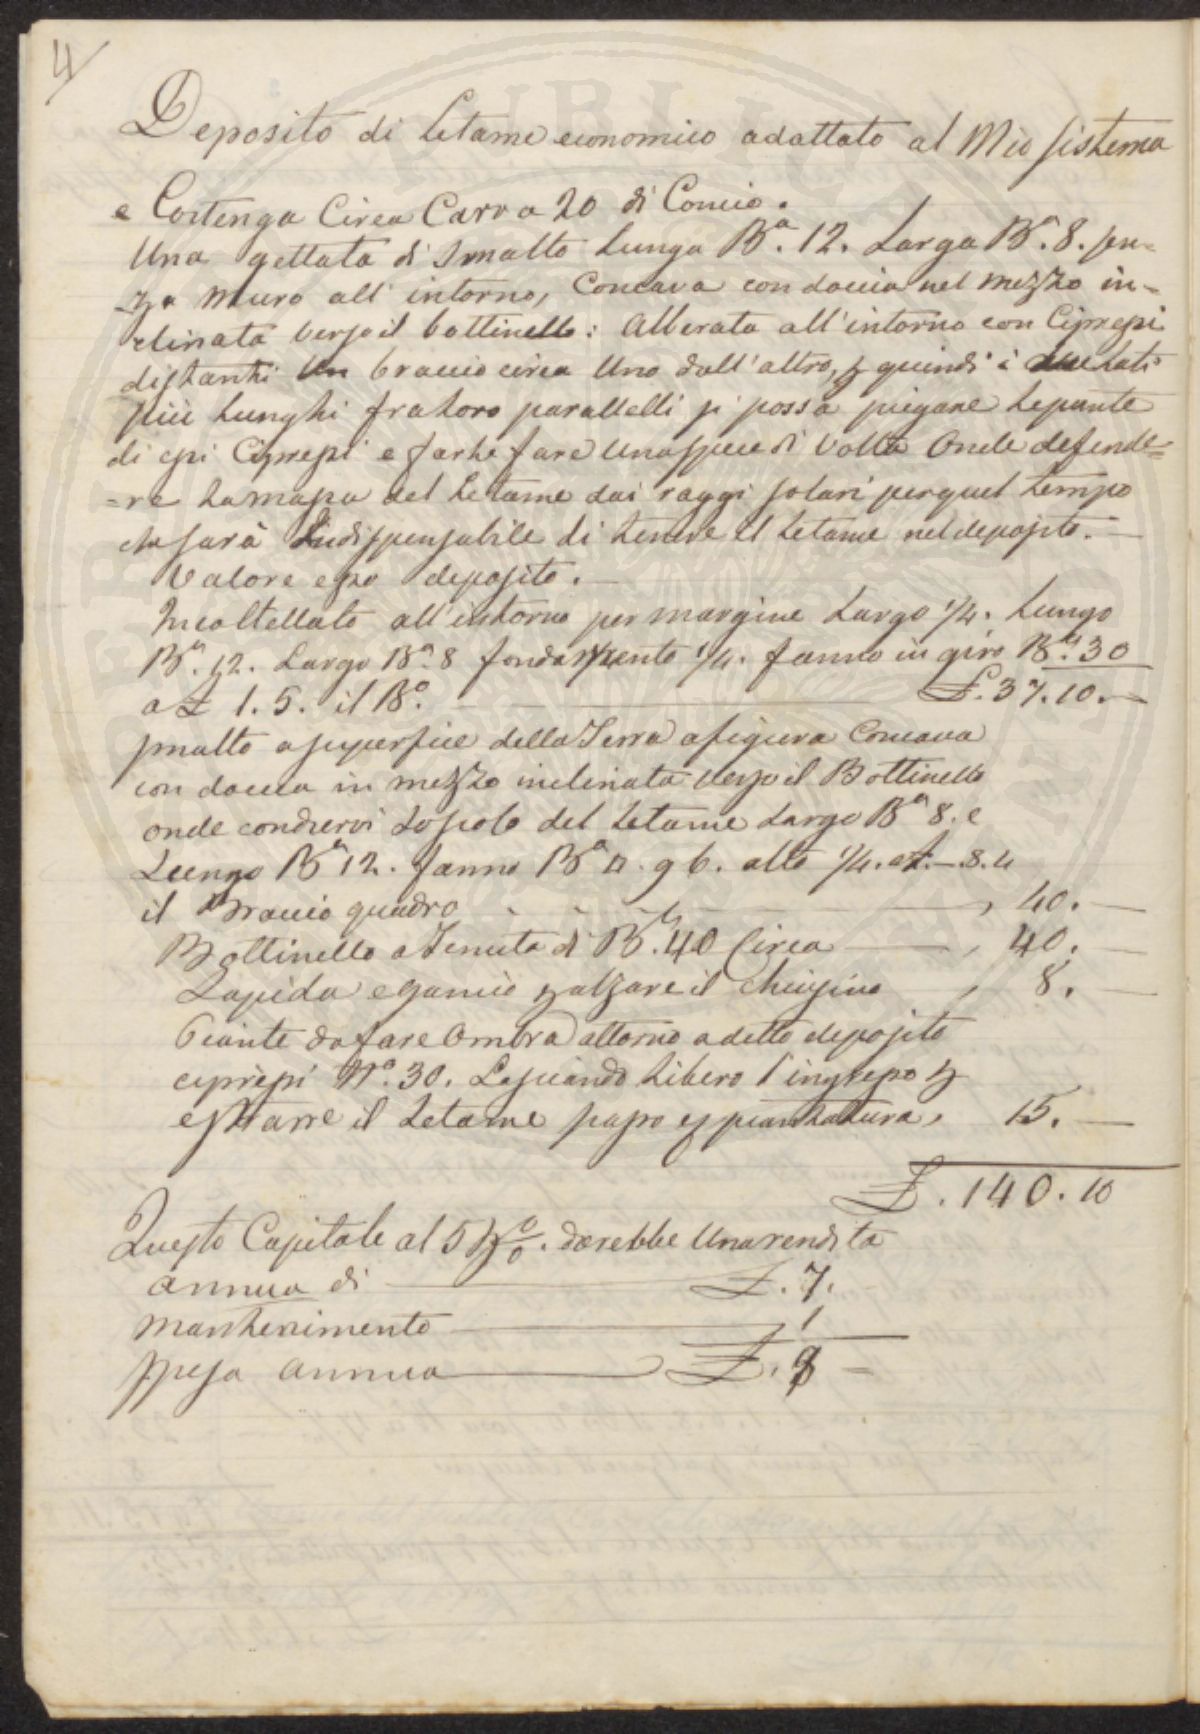 4
Deposito di letame economico adattato al Mio sistema
e Contenga Circa Carra 20 di Concio.
Una gettata di Smalto lunga Bª. 12. Larga Bª. 8. sen=
za muro all' intorno, Concava con doccia nel mezzo in=
clinata verso il bottinello: Alberata all'intorno con Cipressi
distanti un braccio circa Uno dall'altro, e quindi i due lati
più lunghi fra loro parallelli si possa piegare le punte
di essi Cipressi e farle fare una specie di Volta Onde defende=
=re la massa del letame dai raggi solari per quel tempo
che sarà indispensabile di tenere il letame nel deposito.—
Valore esso deposito.—
Incoltellato all'intorno per margine Largo 1/4. lungo
Bª. 12. Largo Bª. 8 fondamento 1/4. fanno in giro Bª. 30
a £ 1. 5. il B°. £. 37. 10.—
smalto a superficie della Terra a figura Concava
con doccia in mezzo inclinata verso il Bottinello
onde condurvi lo scolo del letame Largo Bª 8. e
Lungo Bª 12. fanno Bª q. 96. alto 1/4. a £ — 8. 4
il Braccio quadro — , 40. —
Bottinello a Tenuta di B. 40 Circa — , 40. —
Lapida e gancio p alzare il Chiusino , 8. —
Piante da fare Ombra attorno a detto deposito
cipressi N°. 30. Lasciando libero l'ingresso p
estrarre il letame passo e piantatura, 15. —
£. 140. 10
Questo Capitale al 5 p%. darebbe Una rendita
annua di — £. 7.
Mantenimento — 1
Spesa annua — £. 8 =